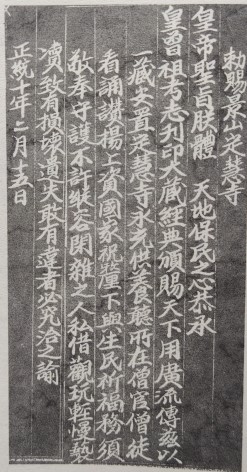 勅賜景山定慧寺
皇帝聖旨朕體 天地保民之心恭承
皇曾祖考志刋印大藏經典頒賜天下用廣流傳茲以
一藏安置定慧寺永充供養聽所在僧官僧徒
看誦讚揚上資國家祝釐下與生民祈福務須
敬奉守護不許縱容閑雜之人私借觀玩輕慢褻
瀆致有損壞遺失敢有違者必究治之諭
正統十年二月十五日